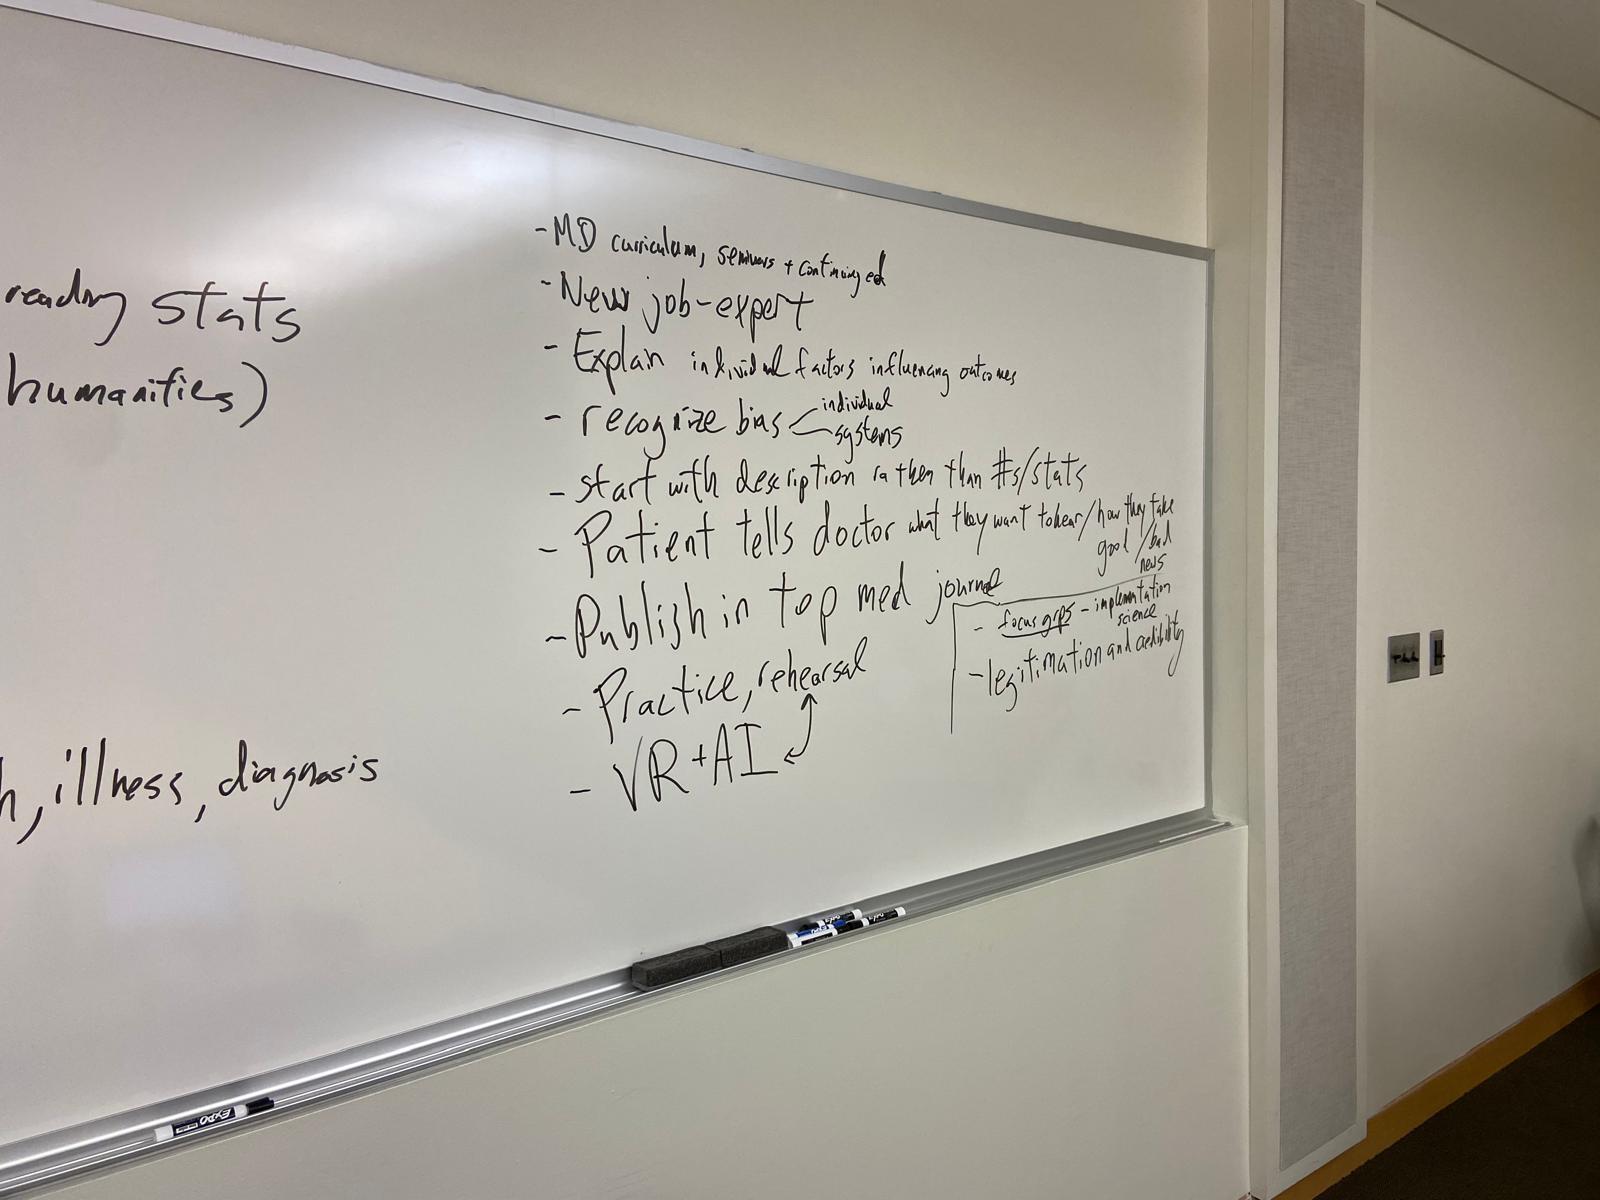 reading stats
humanities)
illness, diagnosis
- MD curriculum, seminars + continuing ed
- New job-expert
- Explain individual factors influencing outcomes
- recognize bias
individual
systems
- start with description rather than #s/stats
- Patient tells doctor what they want to hear/how they take
good/bad
news
- Publish in top med journal
- focus grps - implementation
science
- legitimation and credibility
- Practice, rehearsal
- VR + AI
EXPO